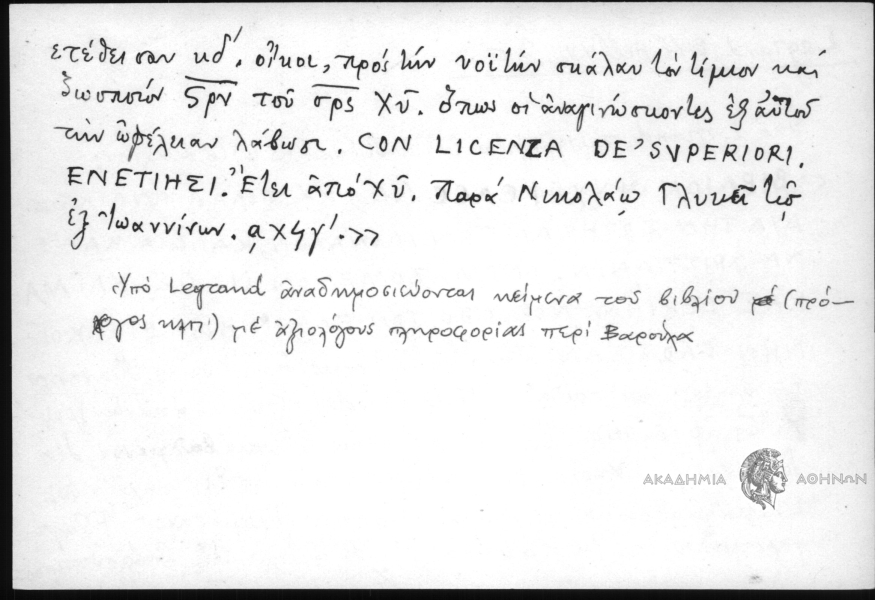 ετέθεισαν κδ´. οἶκοι, πρός τήν νοϊτήν σκάλαν τόν τίμιον καί
ζωοποιόν Σρν τοῦ σρς Χῦ. ὅπως οἱ ἀναγινώσκοντες ἐξ αὐτοῦ
τὴν ὠφέλειαν λάβωσι. CON LICENZA DE' SVPERIORI.
ΕΝΕΤΙΗΣΙ. Ἔτει ἀπό Χῦ. Παρά Νικολάῳ Γλυκεῖ τῷ
ἐξ Ἰωαννίνων. αχϟγ´.»
Ὑπό Legrand ἀναδημοσιεύονται κείμενα τοῦ βιβλίου (πρό-
λογος κλπ) μέ ἀξιολόγους πληροφορίας περί Βαρούχα
ΑΚΑΔΗΜΙΑ ΑΘΗΝΩΝ